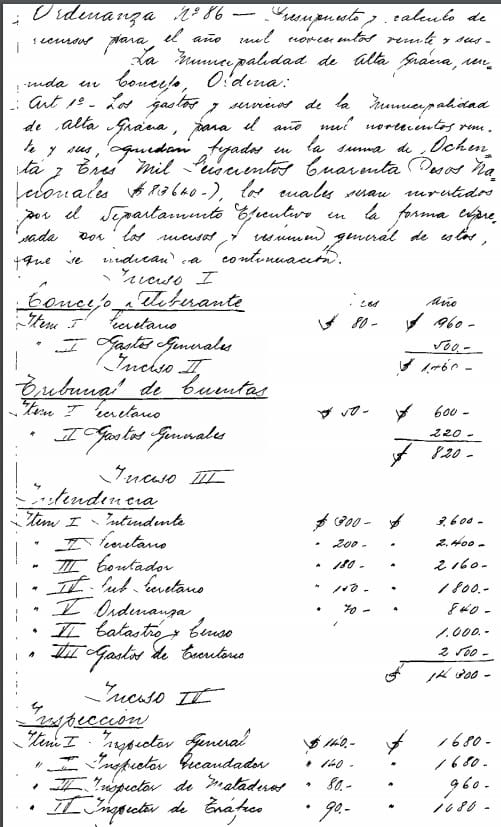 Ordenanza Nº 86 — Presupuesto y calculo de
recursos para el año mil novecientos veinte y seis-
La Municipalidad de Alta Gracia, reu-
nida en Concejo, Ordena:
Art 1º - Los gastos y servicios de la Municipalidad
de Alta Gracia, para el año mil novecientos vein-
te y seis, quedan fijados en la suma de Ochen-
ta y Tres Mil Seiscientos Cuarenta Pesos Na-
cionales ($ 83640-), los cuales seran invertidos
por el Departamento Ejecutivo en la forma expre-
sada por los incisos y resúmen general de estos,
que se indican a continuación.
Inciso I
Concejo Deliberante mes año
Item I Secretario $ 80- $ 960-
" II Gastos Generales 500.-
$ 1.460-
Inciso II
Tribunal de Cuentas
Item I Secretario $ 50- $ 600-
" II Gastos Generales 220-
$ 820-
Inciso III
Intendencia
Item I Intendente $ 300- $ 3.600-
" II Secretario " 200- " 2.400-
" III Contador " 180- " 2160-
" IV Sub-Secretario " 150- " 1800.-
" V Ordenanza " 70- " 840-
" VI Catastro y Censo 1.000.-
" VII Gastos de Escritorio 2500-
$ 14300-
Inciso IV
Inspección
Item I Inspector General $ 140.- $ 1680-
" II Inspector Recaudador " 140- " 1680-
" III Inspector de Mataderos " 80.- " 960-
" IV Inspector de Tráfico " 90.- " 1080-